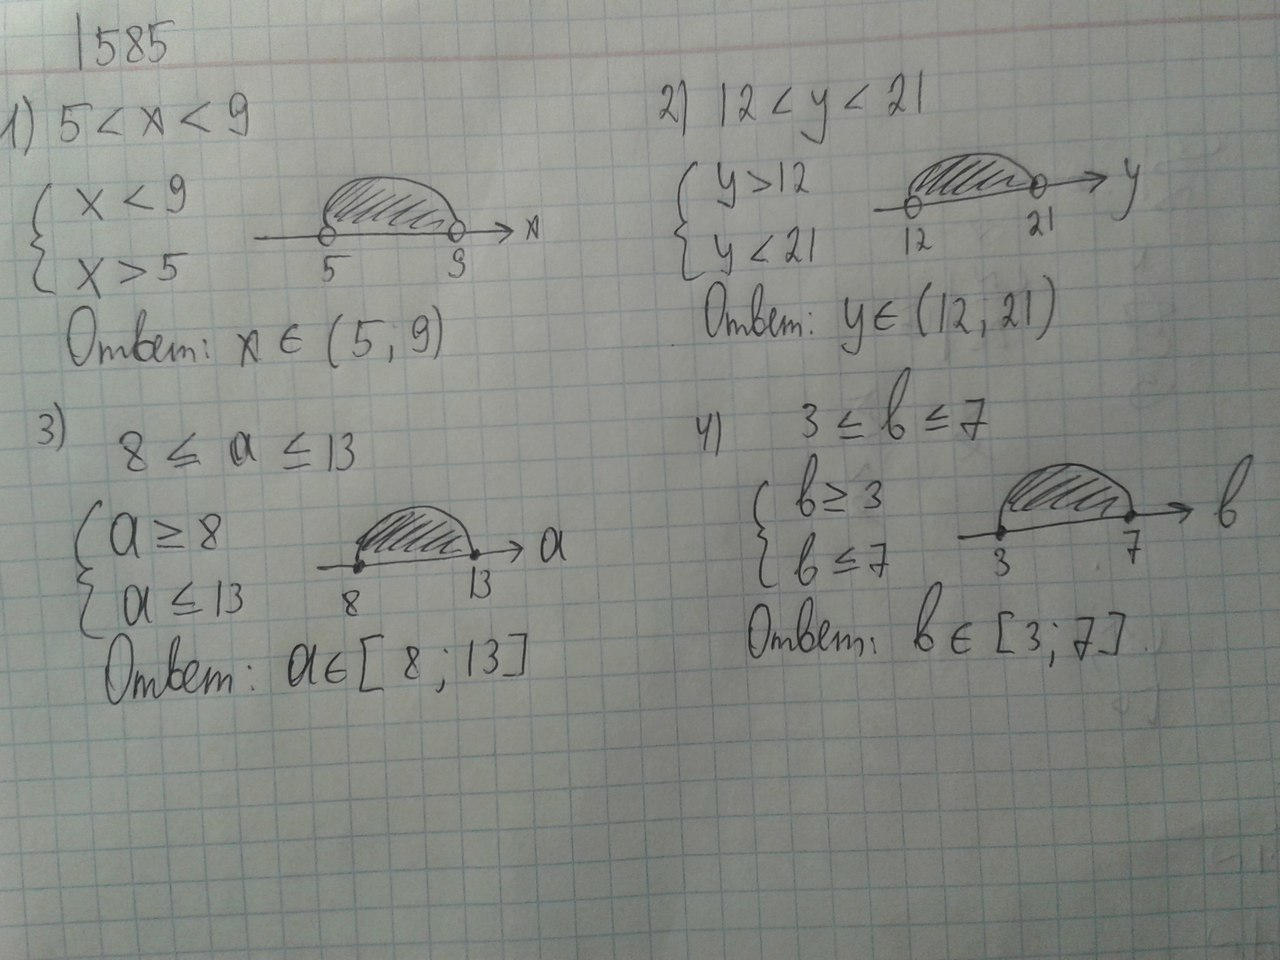 1585
1) 5 < x < 9
{ x < 9
x > 5
5 9 x
Ответ: x ∈ (5; 9)
2) 12 < y < 21
{ y > 12
y < 21
12 21 y
Ответ: y ∈ (12; 21)
3) 8 ≤ a ≤ 13
{ a ≥ 8
a ≤ 13
8 13 a
Ответ: a ∈ [8; 13]
4) 3 ≤ b ≤ 7
{ b ≥ 3
b ≤ 7
3 7 b
Ответ: b ∈ [3; 7].